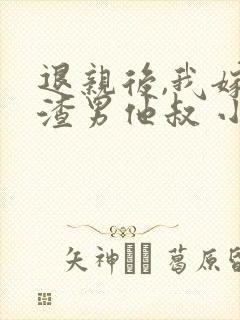 退親後,我嫁
渣男他叔 小
矢神 葛原